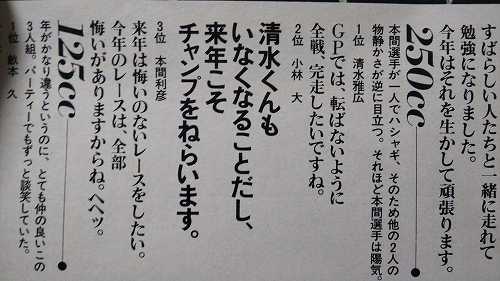 すばらしい人たちと一緒に走れて
勉強になりました。
今年はそれを生かして頑張ります。
250cc
本間選手が一人でハシャギ、そのため他の2人の
物静かさが逆に目立つ。それほど本間選手は陽気。
1位 清水雅広
GPでは、転ばないように
全戦、完走したいですね。
2位 小林 大
清水くんも
いなくなることだし、
来年こそ
チャンプをねらいます。
3位 本間利彦
来年は悔いのないレースをしたい。
今年のレースは、全部
悔いがありますからね。ヘヘッ。
125cc
年がかなり違うというのに、とても仲の良いこの
3人組。パーティーでもずっと談笑していた。
1位 畝本 久